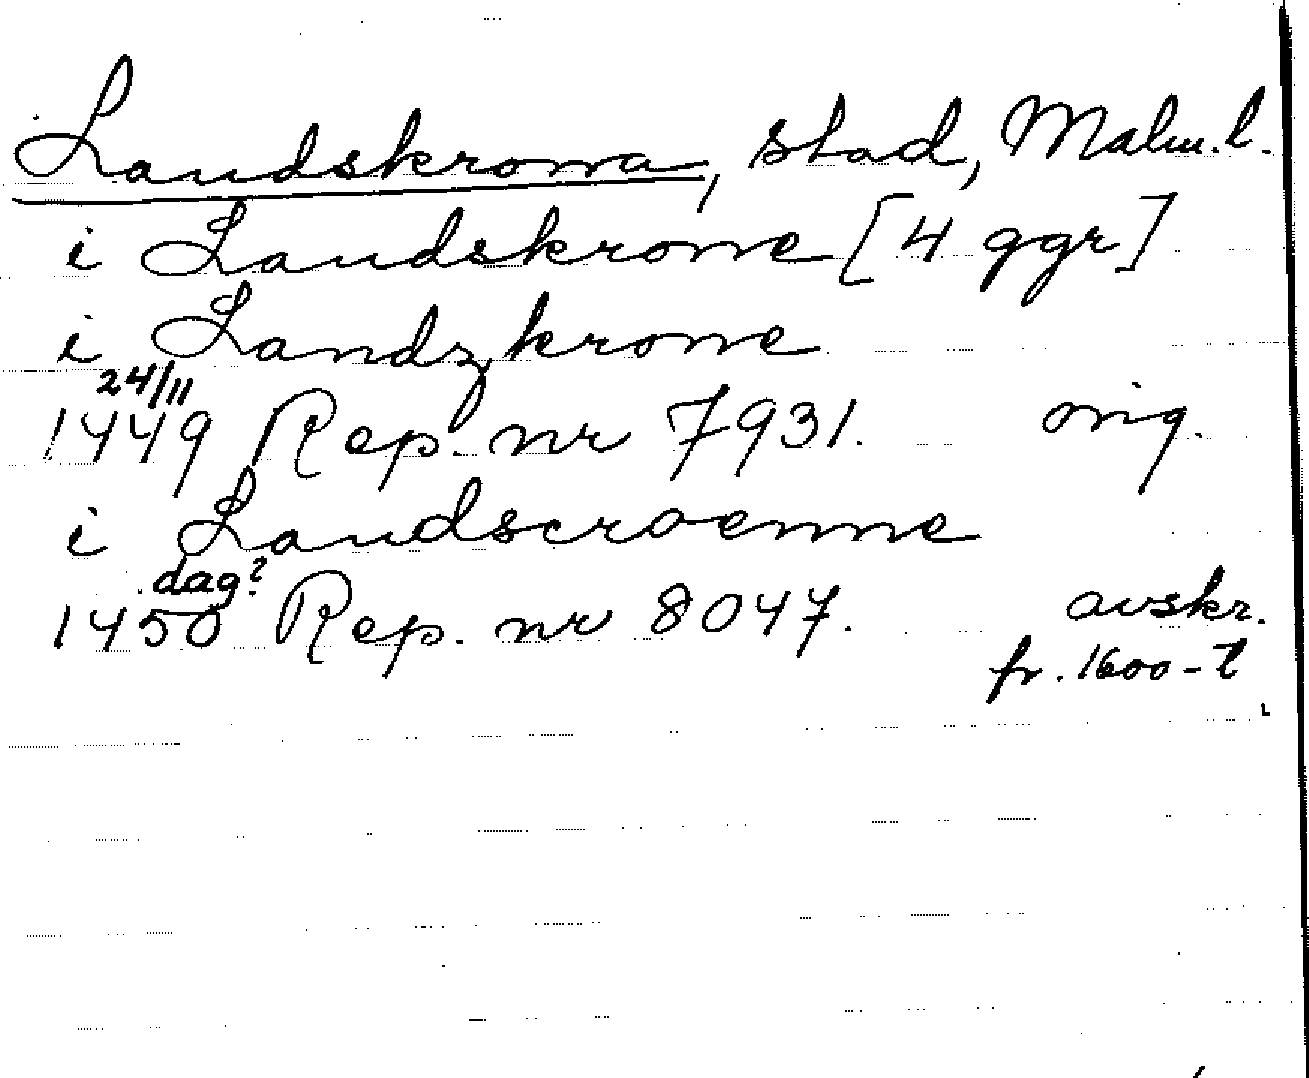 Landskrona, stad, Malm. l.
i Landskrone [4 ggr]
i Landzkrone
24/11
1449 Rep. nr 7931. orig.
i Landscroenne
dag?
1450 Rep. nr 8047. avskr.
fr. 1600-t